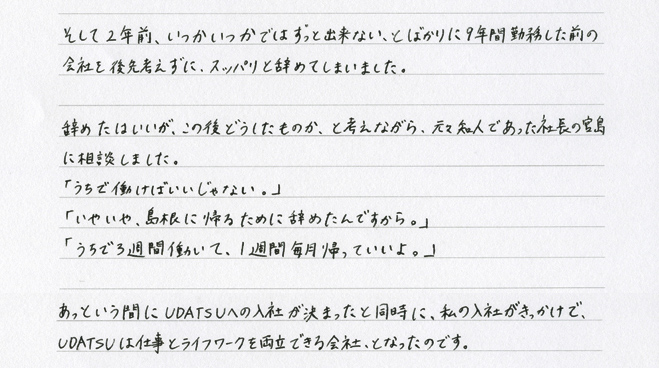 そして2年前、いつかいつかではずっと出来ない、とばかりに9年間勤務した前の
会社を後先考えずに、スッパリと辞めてしまいました。
辞めたはいいが、この後どうしたものか、と考えながら、元々知人であった社長の宮島
に相談しました。
「うちで働けばいいじゃない。」
「いやいや、島根に帰るために辞めたんですから。」
「うちで3週間働いて、1週間毎月帰っていいよ。」
あっという間にUDATSUへの入社が決まったと同時に、私の入社がきっかけで、
UDATSUは仕事とライフワークを両立できる会社、となったのです。